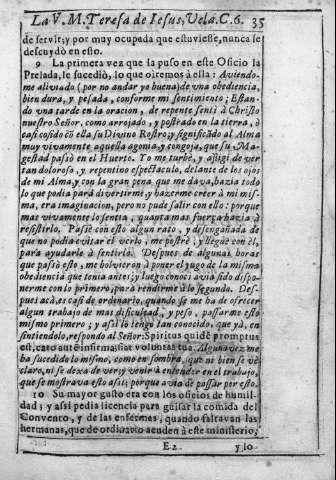 La V. M. Teresa de Iesus, Vela. C. 6. 35
de servir; y por muy ocupada que estuviesse, nunca se
descuydò en esto.
9 La primera vez que la puso en este Oficio la
Prelada, le sucediò, lo que oiremos à ella: Aviendo-
me aliviado (por no andar yo buena) de una obediencia,
bien dura, y pesada, conforme mi sentimiento; Estan-
do una tarde en la oracion, de repente sentì à Christo
nuestro Señor, como arrojado, y postrado en la tierra, à
casi cosido cō ella su Divino Rostro; y significãdo al Alma
muy vivamente aquella agonia, y congoja, que su Ma-
gestad passò en el Huerto. Yo me turbè, y afligì de ver
tan doloroso, y repentino espectaculo, delante de los ojos
de mi Alma, y con la gran pena que me dava, hazia todo
lo que podia para divertirme, y hazerme creer à mi mis-
ma, era imaginacion, pero no pude salir con ello: porque
mas vivamente lo sentia, quanta mas fuerça hazia à
resistirlo. Passè con esto algun rato, y desengañada de
que no podia evitar el verlo, me postrè, y lleguè con èl,
para ayudarle à sentirlo. Despues de algunas horas
que passò esto, me bolvieron à poner el yugo de la misma
obediencia que tenia antes; y luego conocì aviá sido dispo-
nerme con lo primero, para rendirme à lo segundo. Des-
pues acà, es casi de ordinario, quando se me ha de ofrecer
algun trabajo de mas dificultad, y peso, passarme esto
mismo primero; y assi lo tengo tan conocido, que yà, en
sintiendolo, respondo al Señor: Spiritus quidē promptus
est, caro autē infirma; fiat voluntas tua. Alguna vez me
ha sucedido lo mismo, como en sombra, que ni bien se vè
claro, ni se dexa de ver; y venir à entender en el trabajo,
que se mostrava esto assi; porque avia de passar por esto.
10 Su mayor gusto era con los oficios de humil-
dad; y assi pedia licencia para guisar la comida del
Convento, y de las enfermas, quando faltavan las
hermanas, que de ordinario acuden à este ministerio;
E 2 y lo